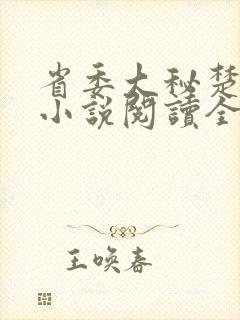 省委大秘楚
小說閱讀全
王喚春